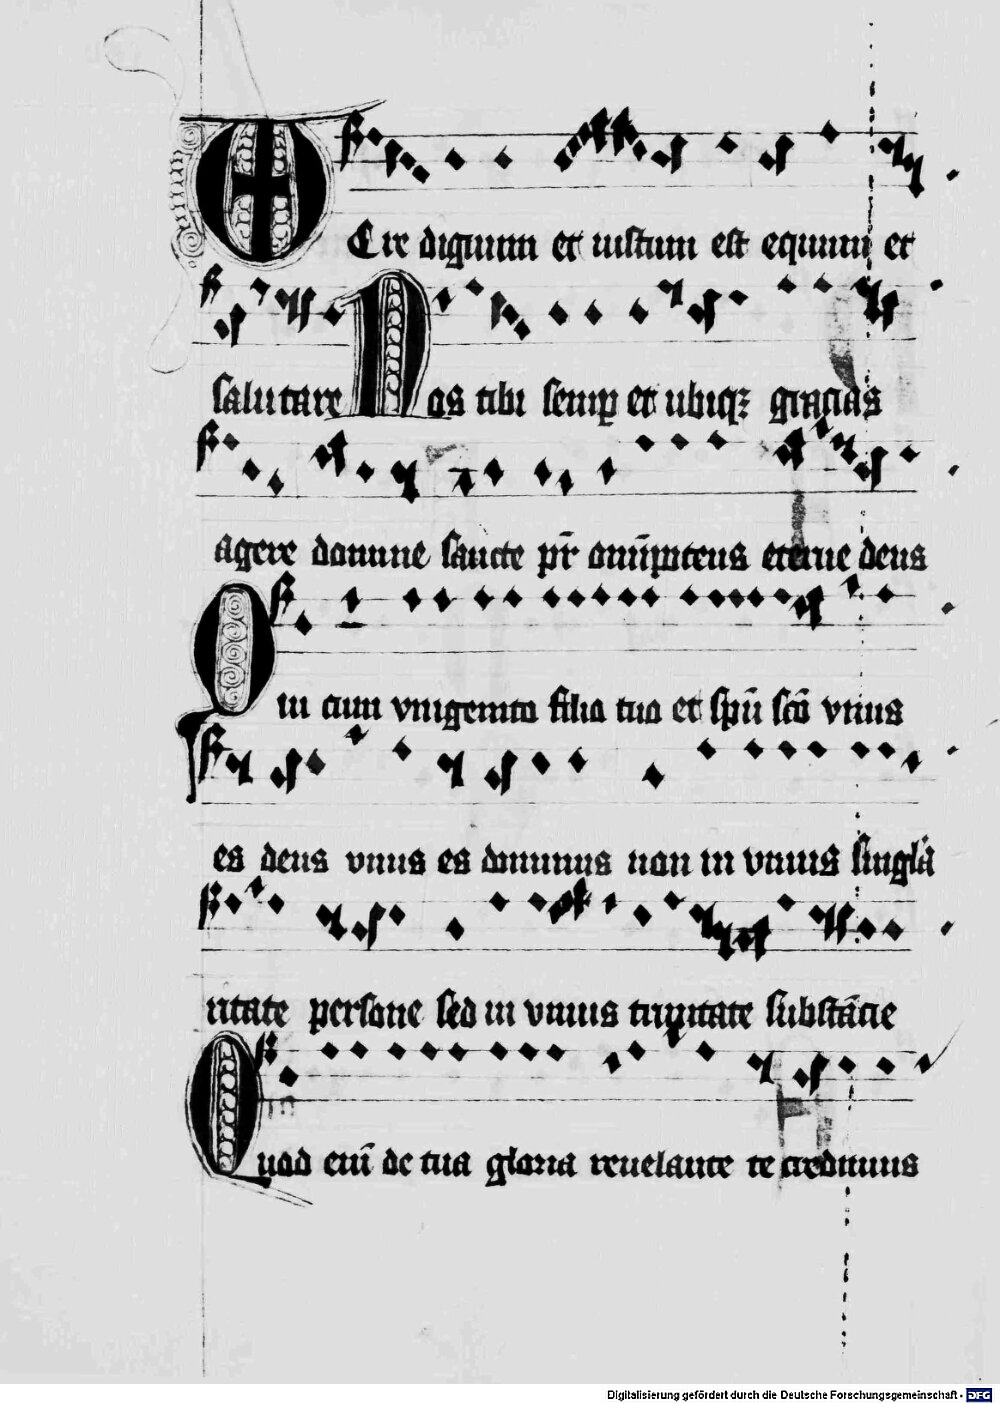 VEre dignum et iustum est equum et
salutare Nos tibi semp et ubiqz gracias
agere domine sancte pr̄ omīpotens eterne deus
Qui cum vnigenito filio tuo et spū scō vnus
es deus vnus es dominus non in vnius singlā
ritate persone sed in vnius trinitate substācie
Quod eni̅ de tua gloria reuelante te credimus
Digitalisierung gefördert durch die Deutsche Forschungsgemeinschaft - DFG